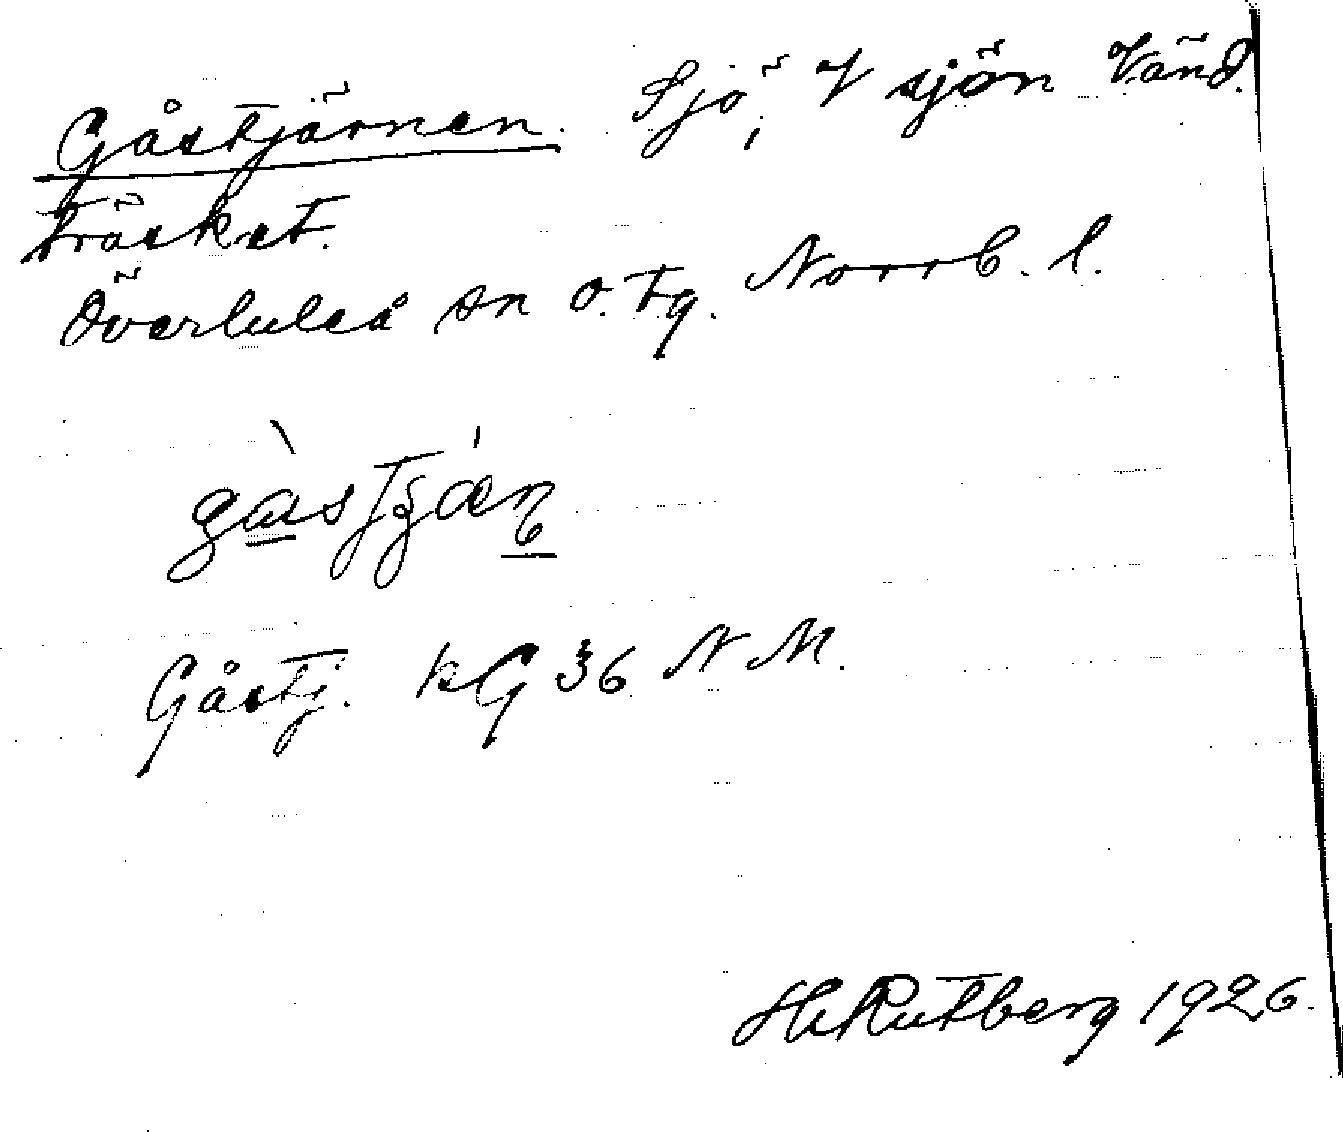 Gåstjärnen. Sjö, V sjön Vänd.
träsket.
Överluleå sn ö. tg. Norrb. l.
Gåstj. kG 36 N M.
H Rutberg 1926.